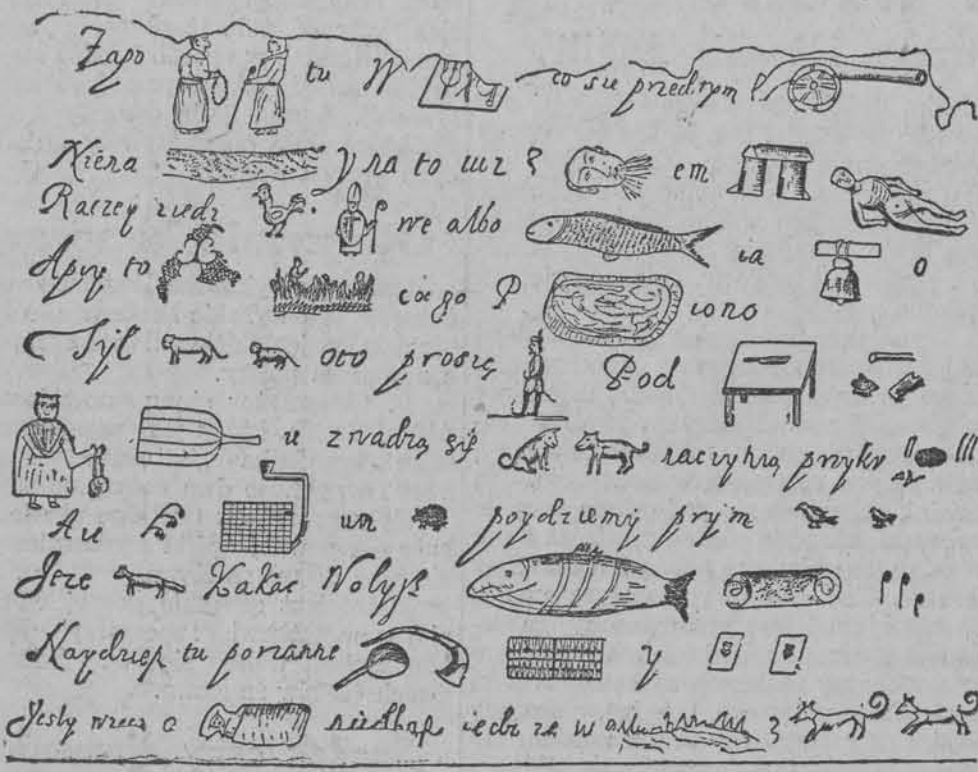 Zapo tu W co sie przed tym
Niena y na to wz em
Raczey ziedz we albo
Apyę to ca go P ia o
iono
Syl oto proszę Pod
u zwadzą się zaczyną przykr
A ie um poydziemy prym
Jeze Kakac Wolysz
Naydzies tu poranne y
Jesly wzecz o ze w